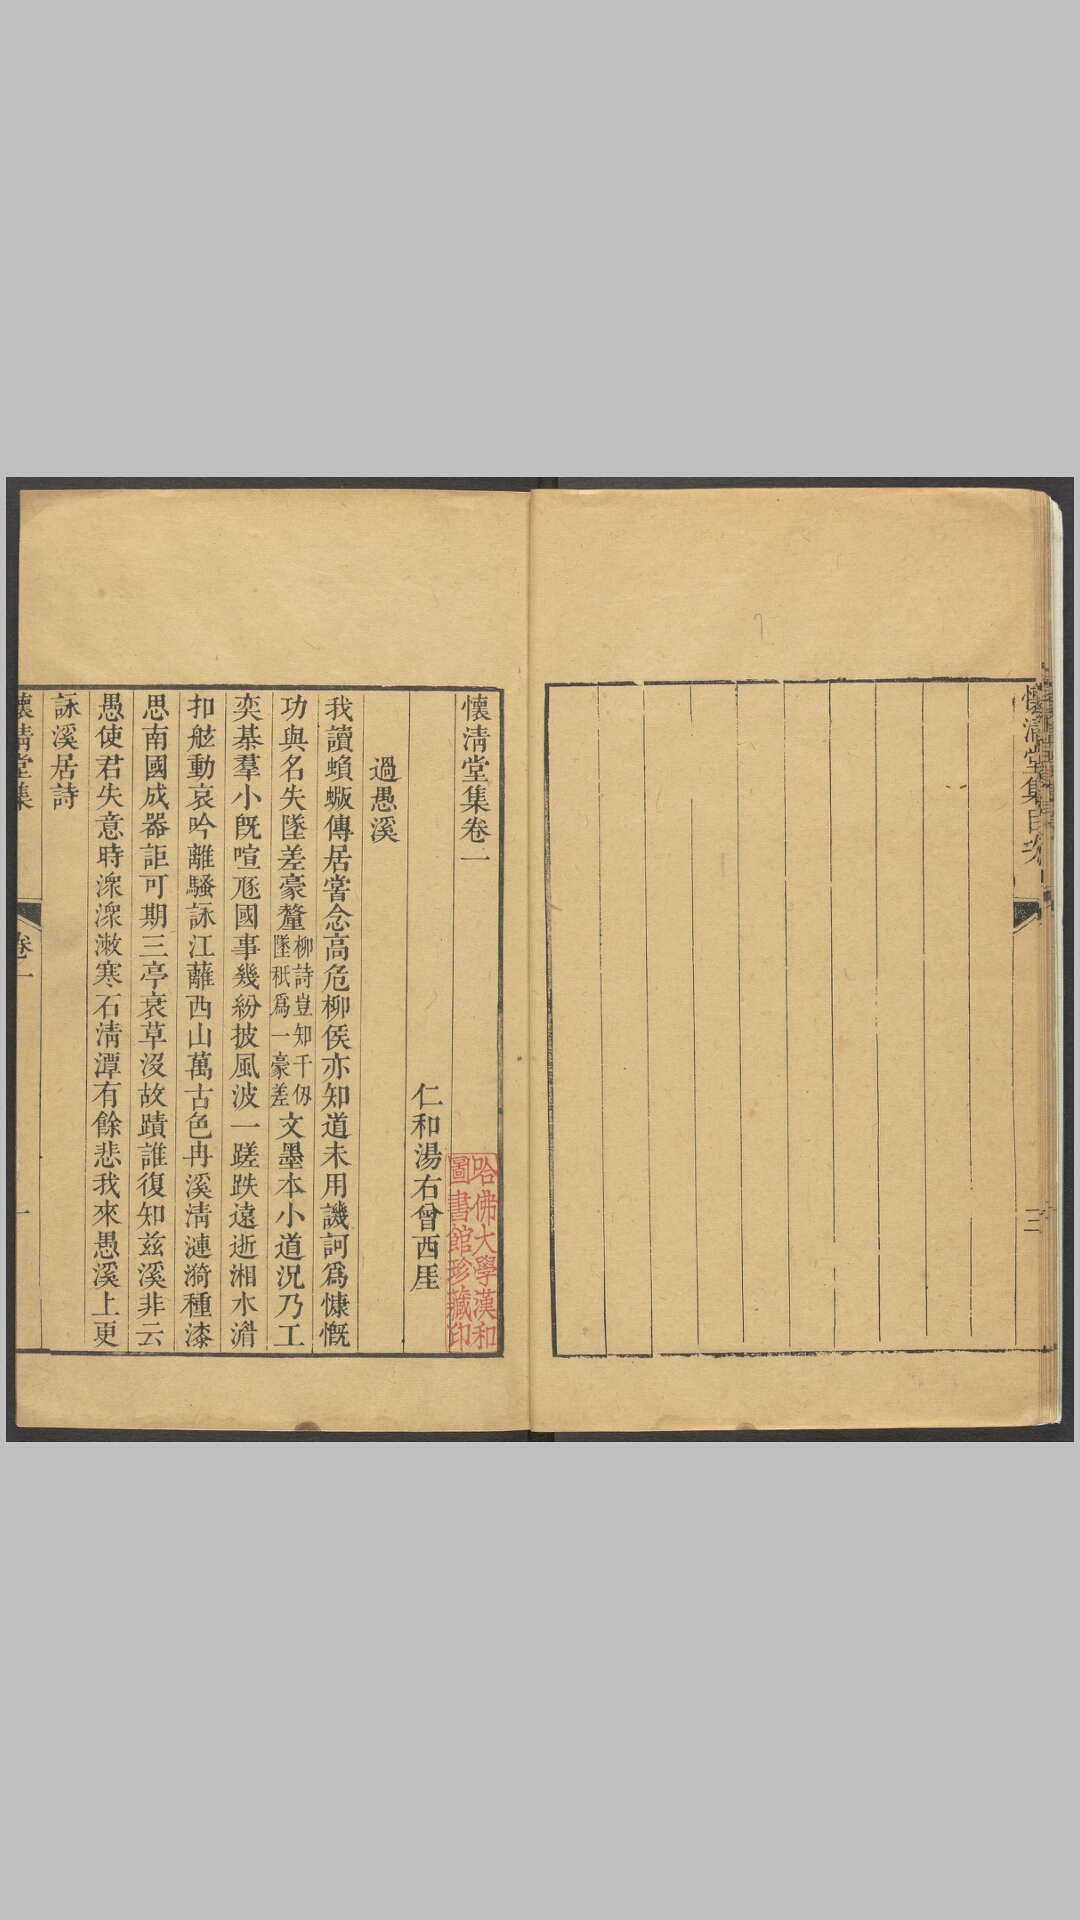 懷清堂集目次
三
懷清堂集卷一
仁和湯右曾西厓
哈佛大學漢和
圖書館珍藏印
過愚溪
我讀蝜蝂傳居嘗念高危柳侯亦知道未用譏訶爲慷慨
功與名失墜差豪釐柳詩豈知千仞墜秖爲一豪差文墨本小道況乃工
奕棊羣小旣喧豗國事幾紛披風波一蹉跌遠逝湘水湄
扣舷動哀吟離騷詠江蘺西山萬古色冉溪清漣漪種漆
思南國成器詎可期三亭衰草沒故蹟誰復知茲溪非云
愚使君失意時潀潀漱寒石清潭有餘悲我來愚溪上更
詠溪居詩
懷清堂集
卷一
一